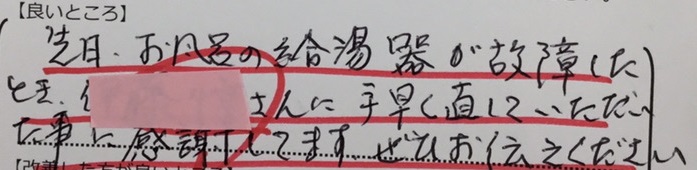 【良いところ】
先日、お風呂の給湯器が故障した
とき、さんに手早く直していただい
た事に感謝してます。ぜひお伝えください
【改善した方が良いところ】